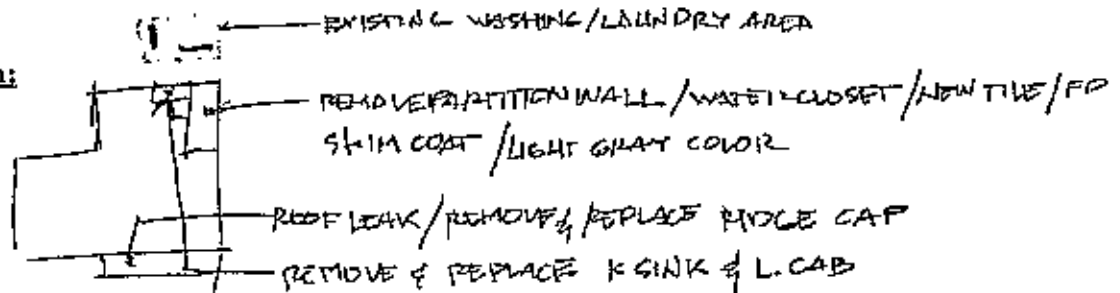 EXISTING WASHING/LAUNDRY AREA
REMOVE PARTITION WALL/WATER CLOSET/NEW TILE/FD
SKIM COAT/LIGHT GRAY COLOR
ROOF LEAK/REMOVE & REPLACE RIDGE CAP
REMOVE & REPLACE K SINK & L. CAB